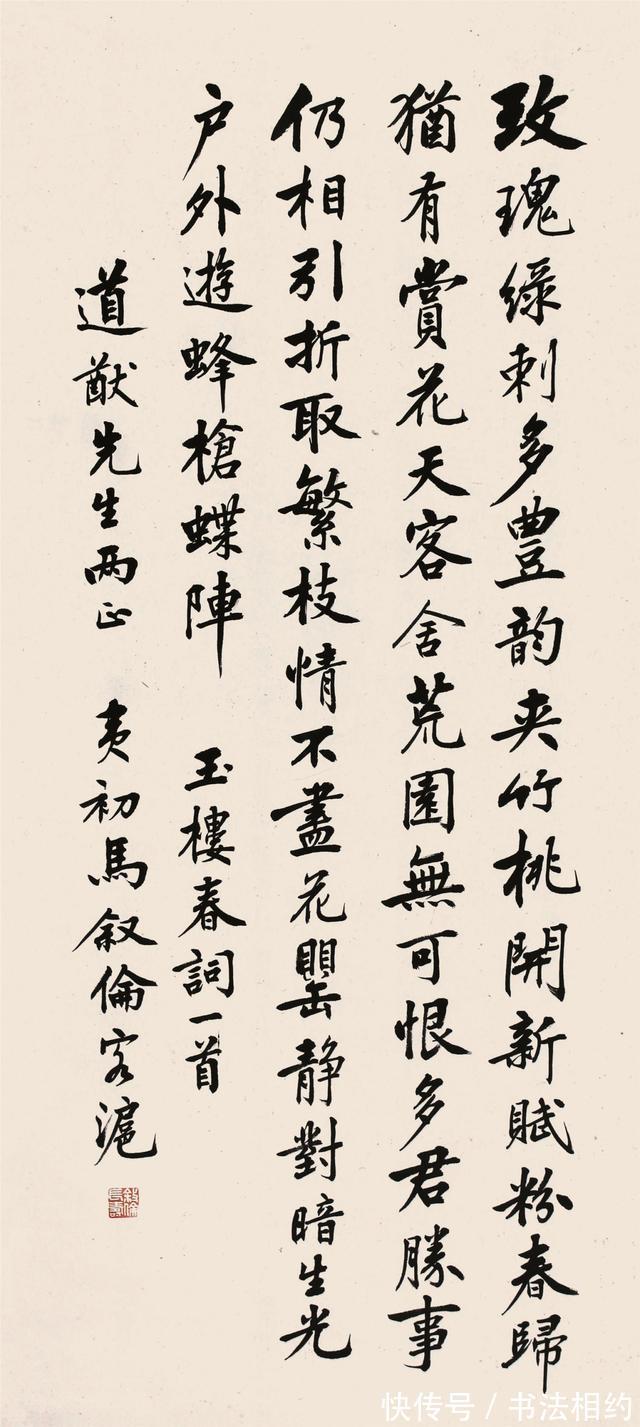 玫瑰綠刺多豊韵夾竹桃開新賦粉春歸
猶有賞花天客舍荒園無可恨多君勝事
仍相引折取繁枝情不盡花罌静對暗生光
户外遊蜂槍蝶陣 玉樓春詞一首
道猷先生兩正 夷初馬叙倫客滬
叙倫長壽
快传号／书法相约